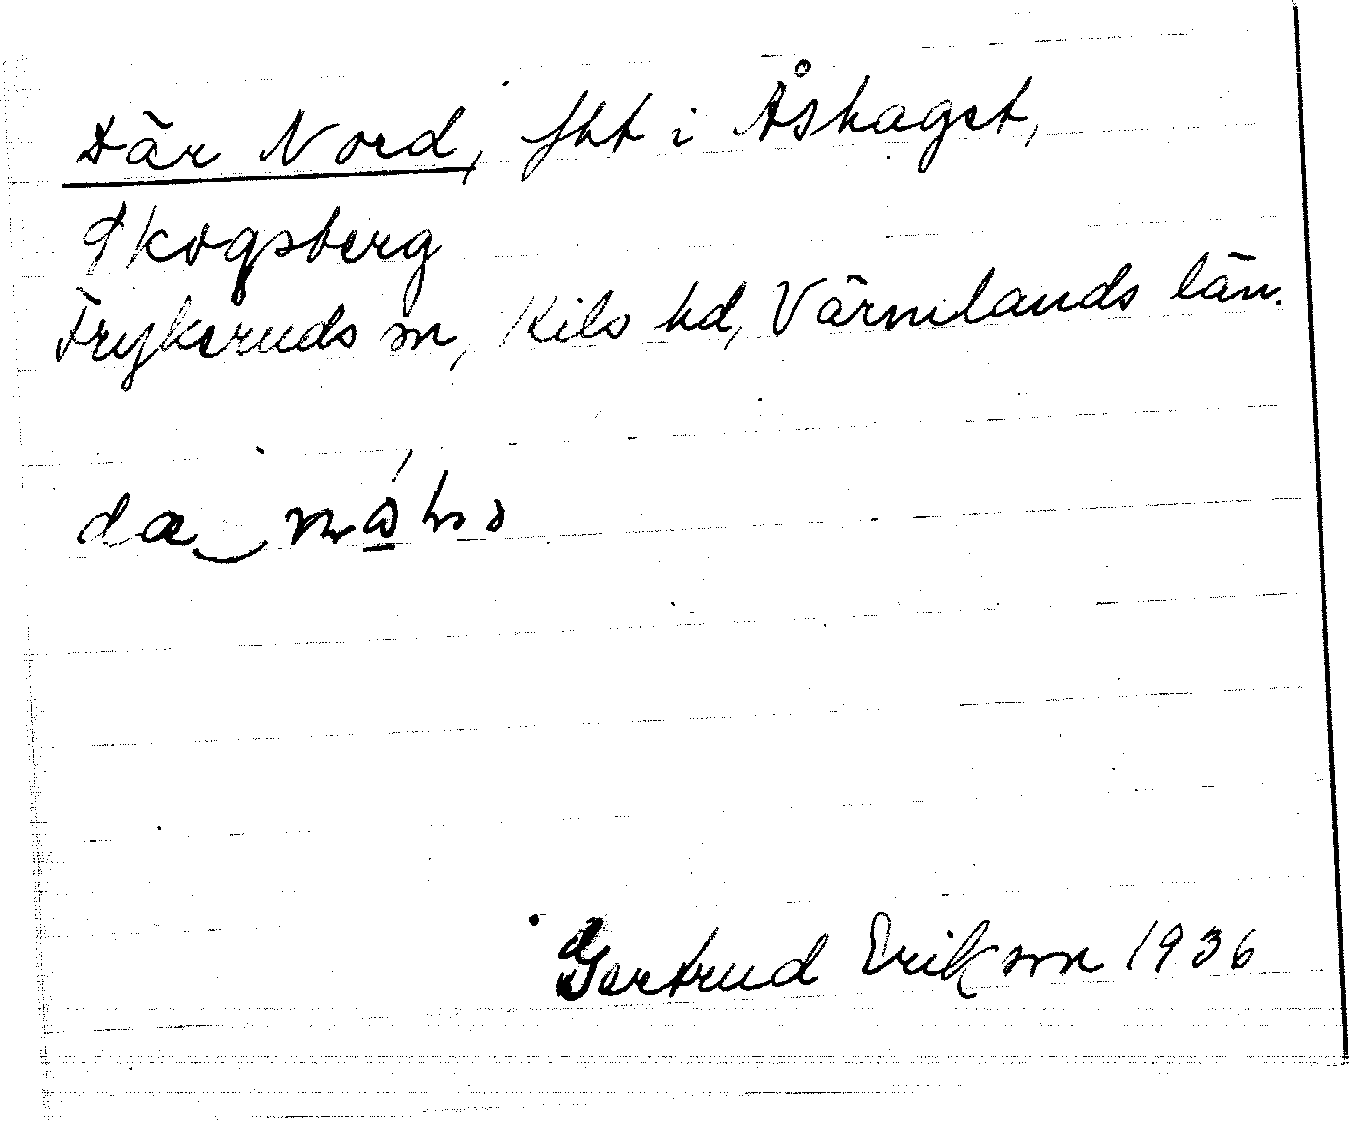 Där Nord, fht i Åshaget,
Skogsberg
Frykeruds sn, Kils hd, Värmlands län.
da
Gertrud Erikson 1936